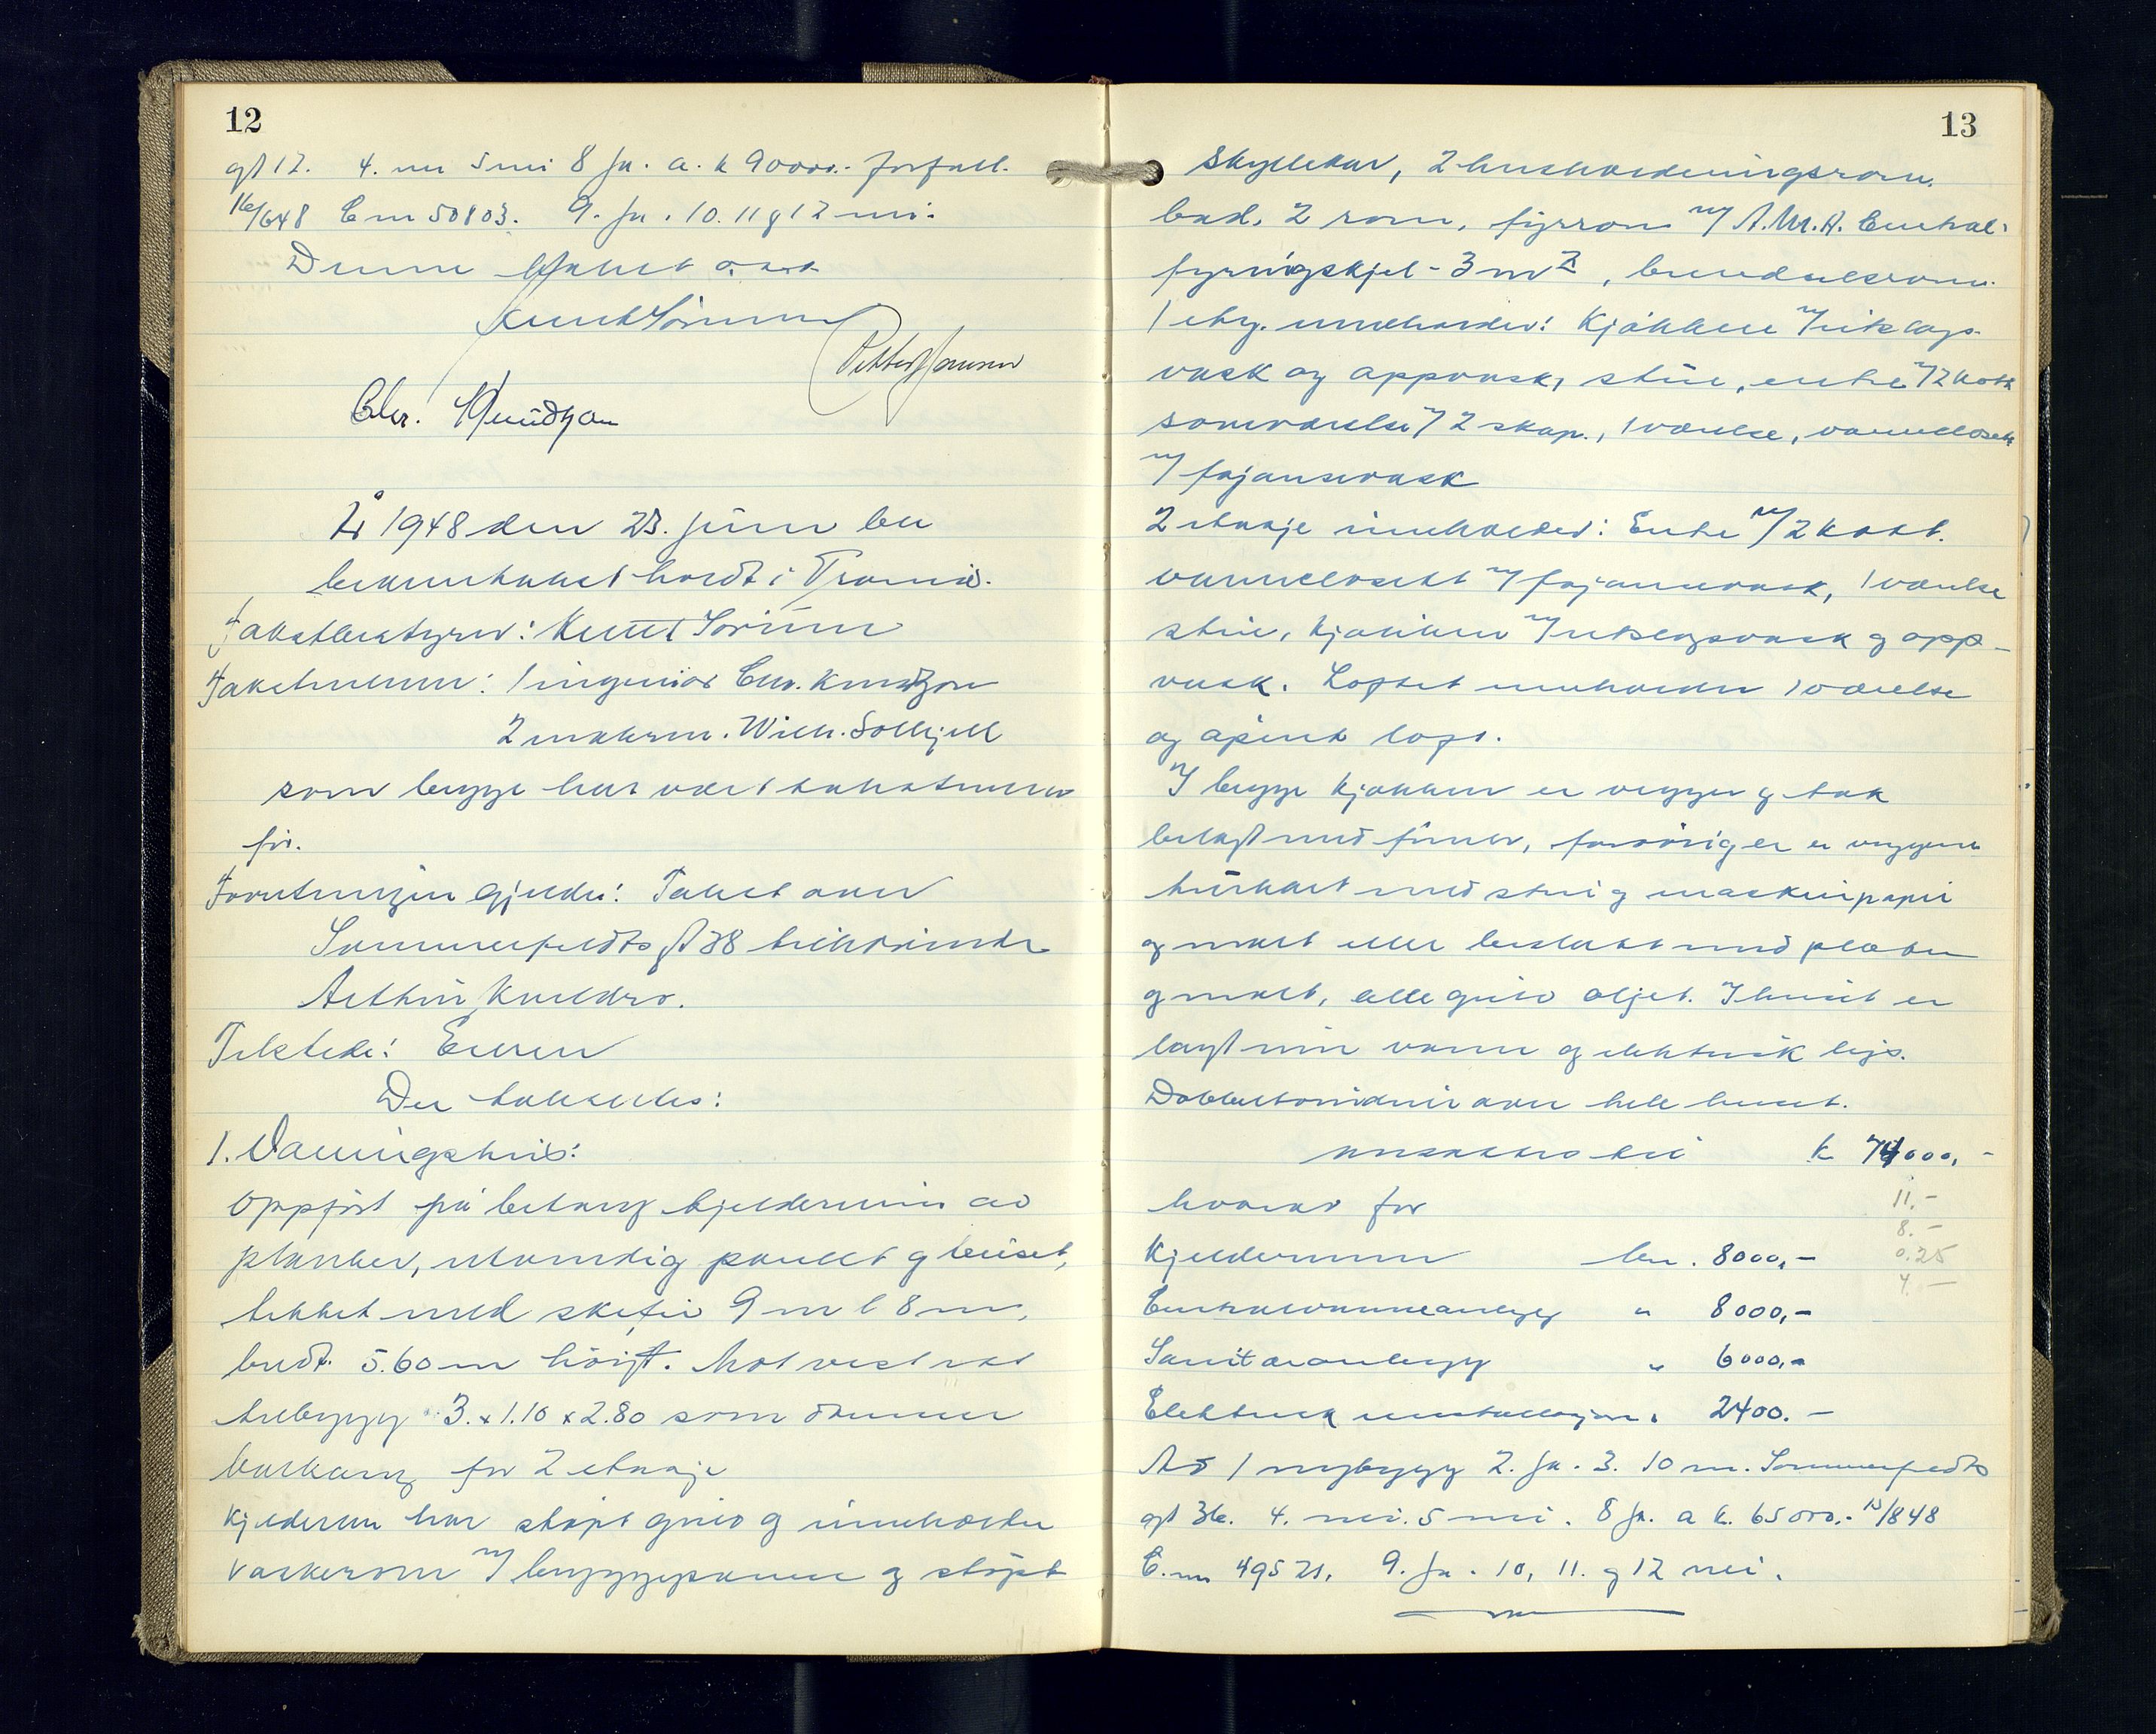 12
gt 12. 4. nei 5 nei 8 ja. a. k 90000.- forfall.
16/648 C nr 50803. 9. ja. 10. 11 g 12 nei.
Denne takst
Knut Sörum
Petter Jensen
Chr. Knudtzon
År 1948 den 23. juni ble
branntakst holdt i Tromsö.
Takstbestyrer: Knut Sörum
Takstmenn: 1 ingeniör Chr. Knudtzon
2 malerm. Wilh. Solhjell
som begge har vært takstmenn
för.
Forretningen gjelder: Takst over
Sommerfeldts gt 38 tilhörende
Arthur Kveldro.
Tilstede: Eieren
Der takseres:
1. Våningshus:
Oppfört på betong kjeldermur av
planker, utvendig panelt g beiset,
tekket med skifer 9 m l 8 m.
bredt 5.60 m höigt. Mot vest et
tilbygg 3. x 1.10 x 2.80 som danner
balkong for 2 etasje
Kjelderen har stöpt gulv g inneholder
vaskerom m/ bryggepanne g stöpt
13
skyllekar, 2 husholdningsrom.
bad, 2 rom, fyrrom m/ A.M.A. Central-
fyringskjel - 3 m2, brendselsrom.
1 etg. inneholder: Kjökken m/ utslags-
vask og oppvask, stue, entre m/ 2 kott
soveværelse m/ 2 skap., 1 værelse, vannklosett
m/ fajansevask
2 etasje inneholder: Entre m/ 2 kott.
vannklosett m/ fajansevask, 1 værelse
stue, kjökken m/ utslagsvask g opp-
vask. Loftet inneholder 1 værelse
og åpent loft.
I begge kjökken er vegger g tak
belagt med finer, forövrig er veggene
trukket med strie g maskinpapir
og malt eller beslått med plater
g malt, alle gulv oljet. I huset er
lagt inn vann g elektrisk lys.
Dobbeltvinduer over hele huset.
ansættes til k 74000,-
hvorav for
11.-
8.-
0.25
4.-
Kjeldermur kr. 8000,-
Centralvarmeanlegg " 8000,-
Sanitæranlegg " 6000,-
Elektrisk installasjon " 2400.-
Ad 1 nybygg 2. ja. 3. 10 m. Sommerfeldts
gt 36. 4. nei. 5 nei. 8 ja. a k. 65000.- 13/848
C. nr 49521. 9. ja. 10, 11. g 12 nei.